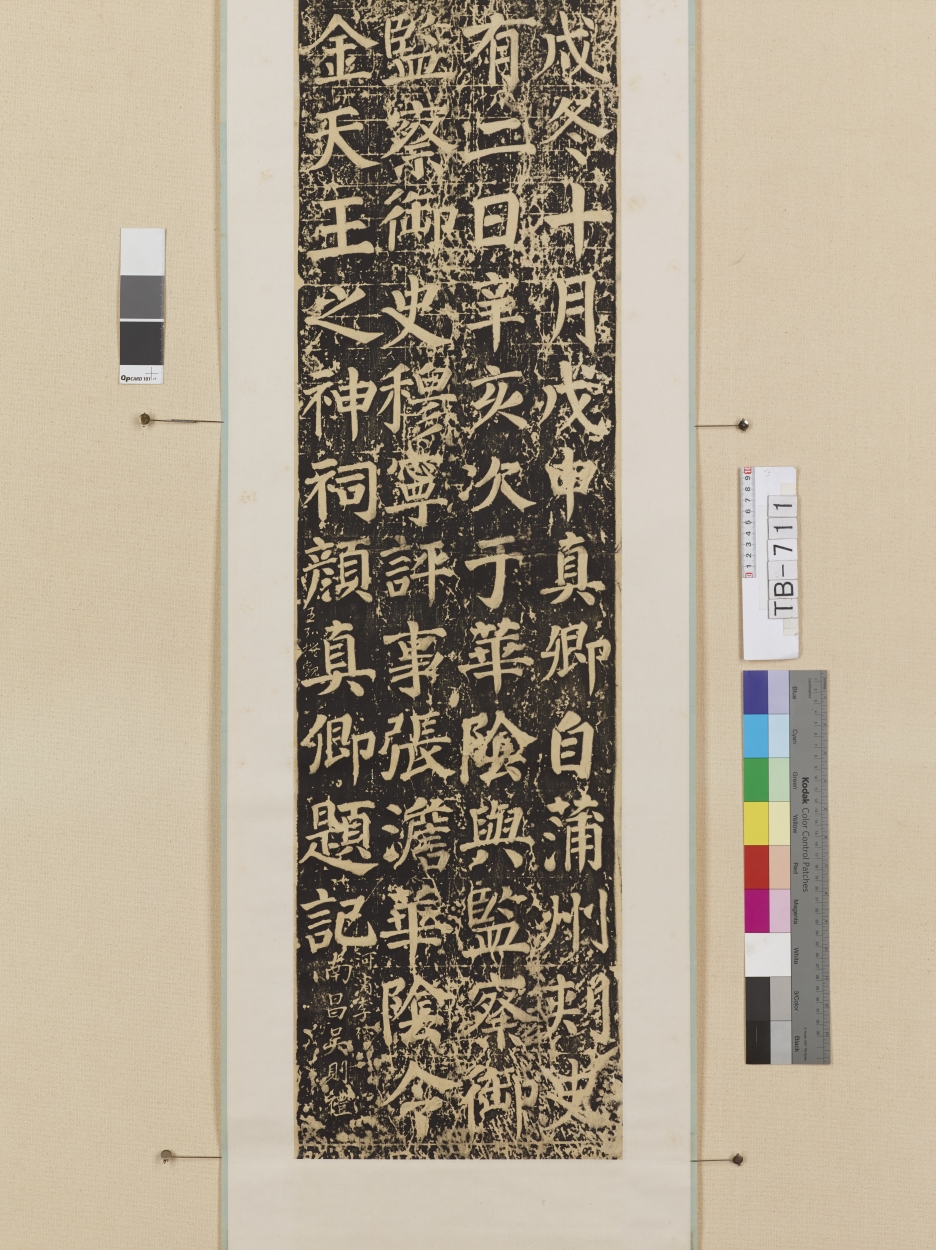 戌冬十月戊申真卿自蒲州刾史
有二日辛亥次于華陰與監察御
監察御史穆寧評事張澹華陰令
金天王之神祠顏真卿題記
南昌吳則禮
OpCARD 101
TB-711
Kodak Color Control Patches
Blue
Cyan
Green
Yellow
Red
Magenta
White
3/Color
Black